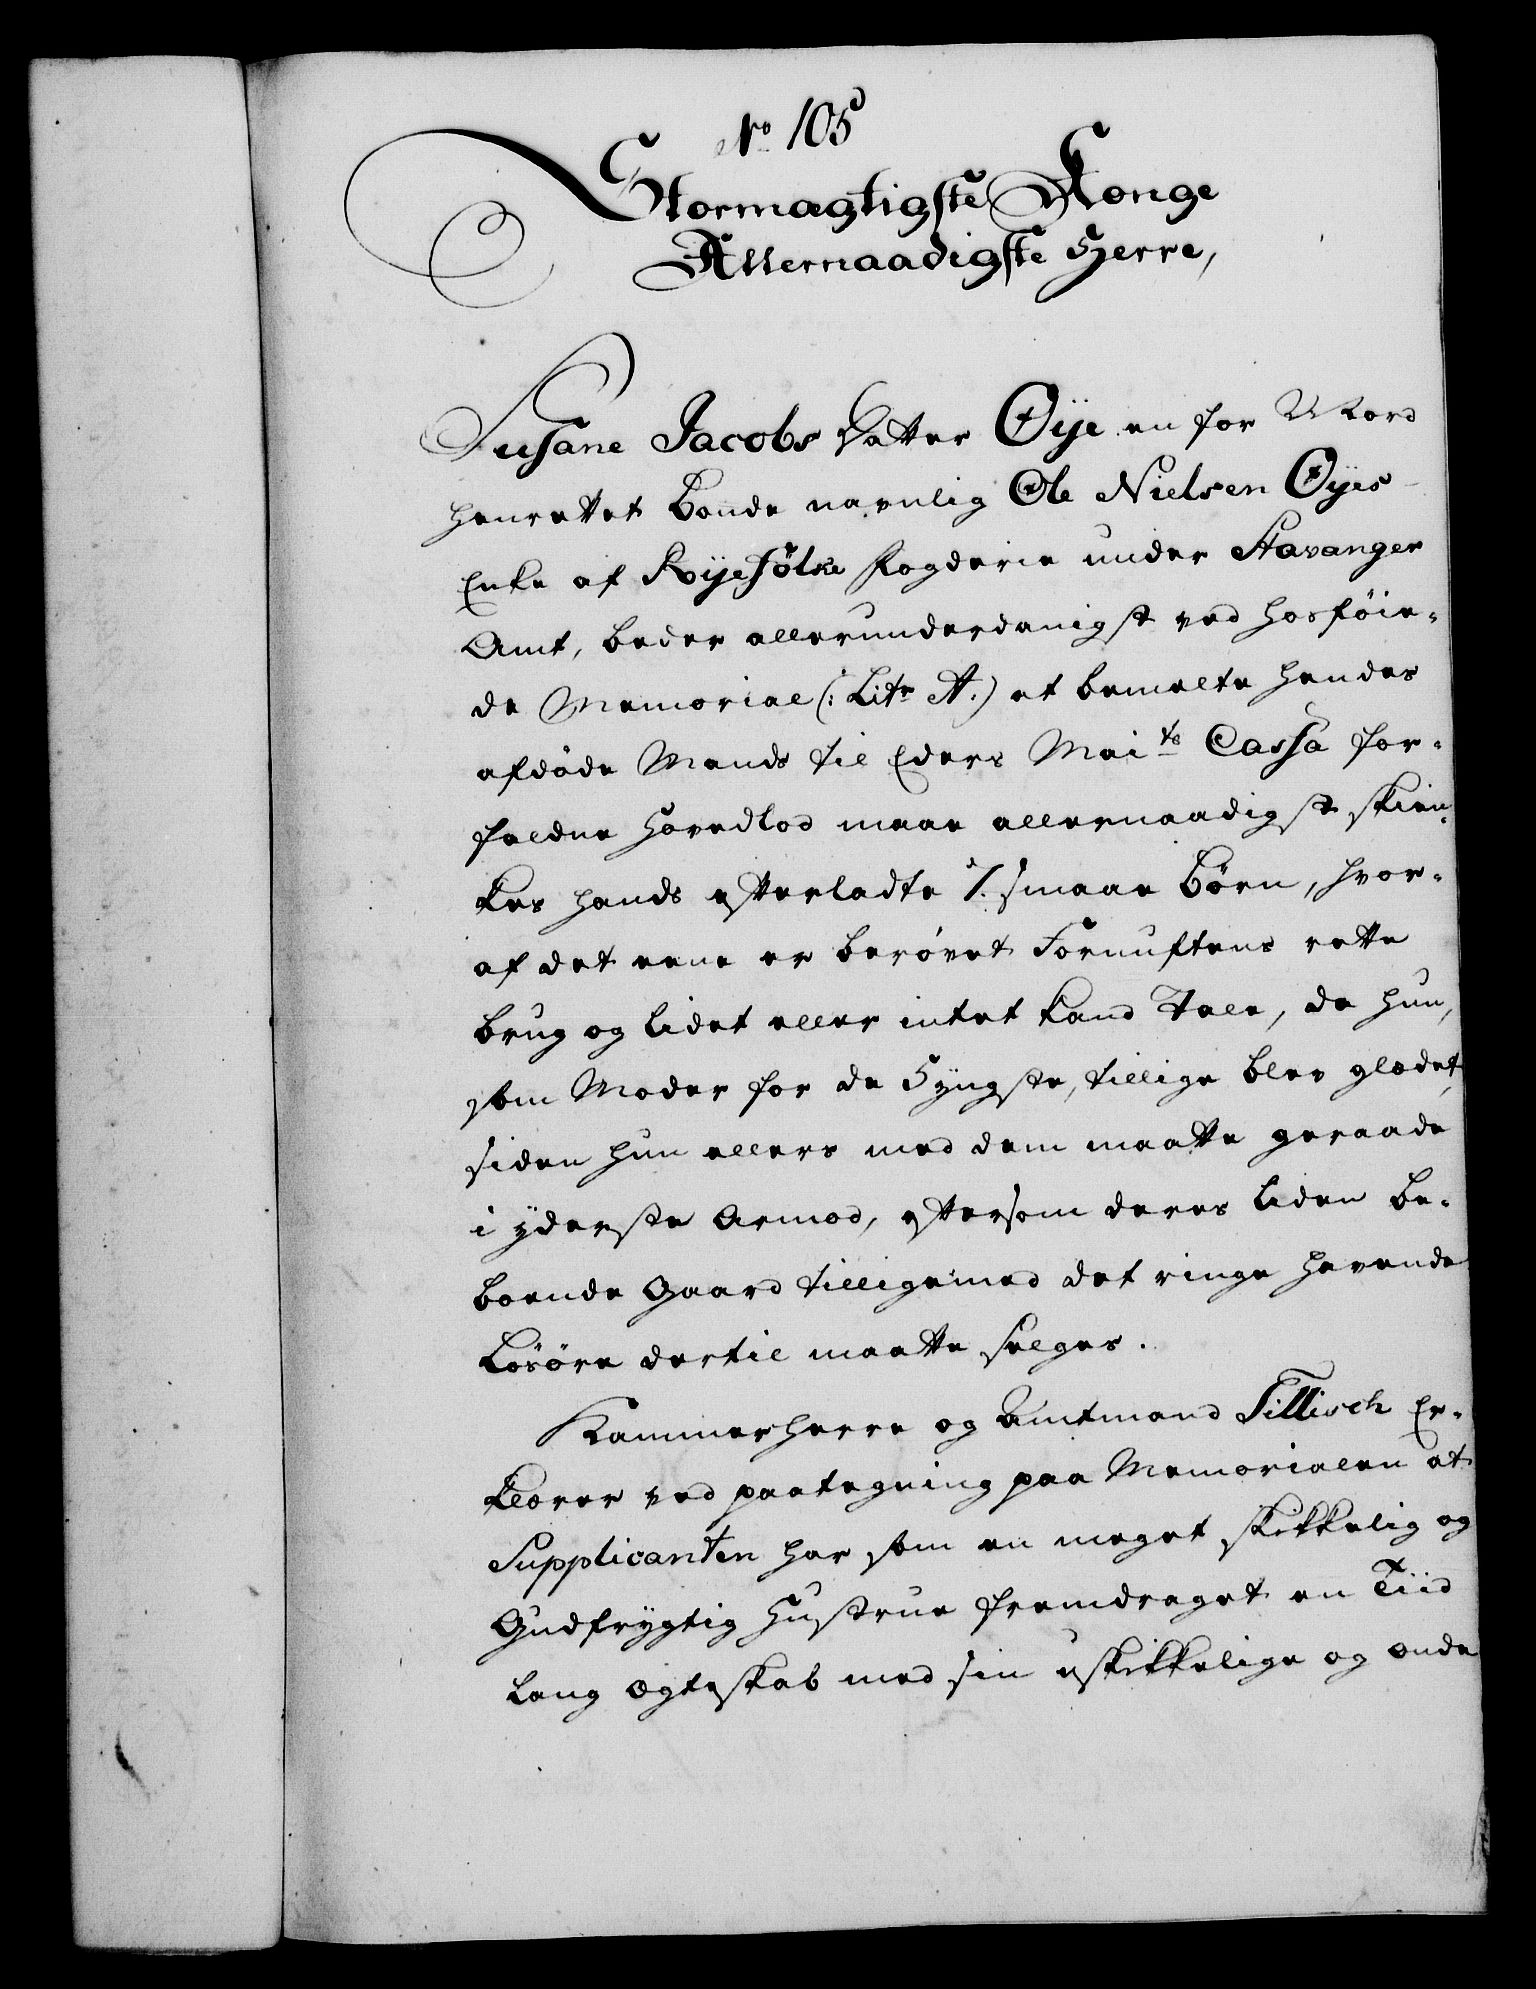 No 105
Stormagtigste Konge
Allernaadigste Herre,
Susane Jacobs Datter Øije en for Mord
henrettet Bonde navnlig Ole Nielsen Øijes
Enke af Ryefölke Fogderie under Stavanger
Amt, beder allerunderdanigst ved hosföie-
de Memorial (: Litr A.) at bemelte hendes
afdöde Mands til Eders Maits Cassa for-
faldne Hovedlod maae allernaadigst skien-
kes hands efterladte 7. smaae Börn, hvor-
af det eene er beróvet Fornuftens rette
brug og lidet eller intet kand Tale, da hun,
som Moder for de 5 yngste, tillige blev glædet,
siden hun ellers med dem maatte geraade
i yderste Armod, eftersom deres liden be-
boende Gaard tilligemed det ringe havende
Lösöre dertil maatte selges.
Kammerherre og Amtmand Tillisch Er-
klærer ved paategning paa Memorialen at
Supplicanten har som en meget skikkelig og
Gudfrygtig Hustrue fremdraget en Tiid
lang ægteskab med sin uskikkelige og onde